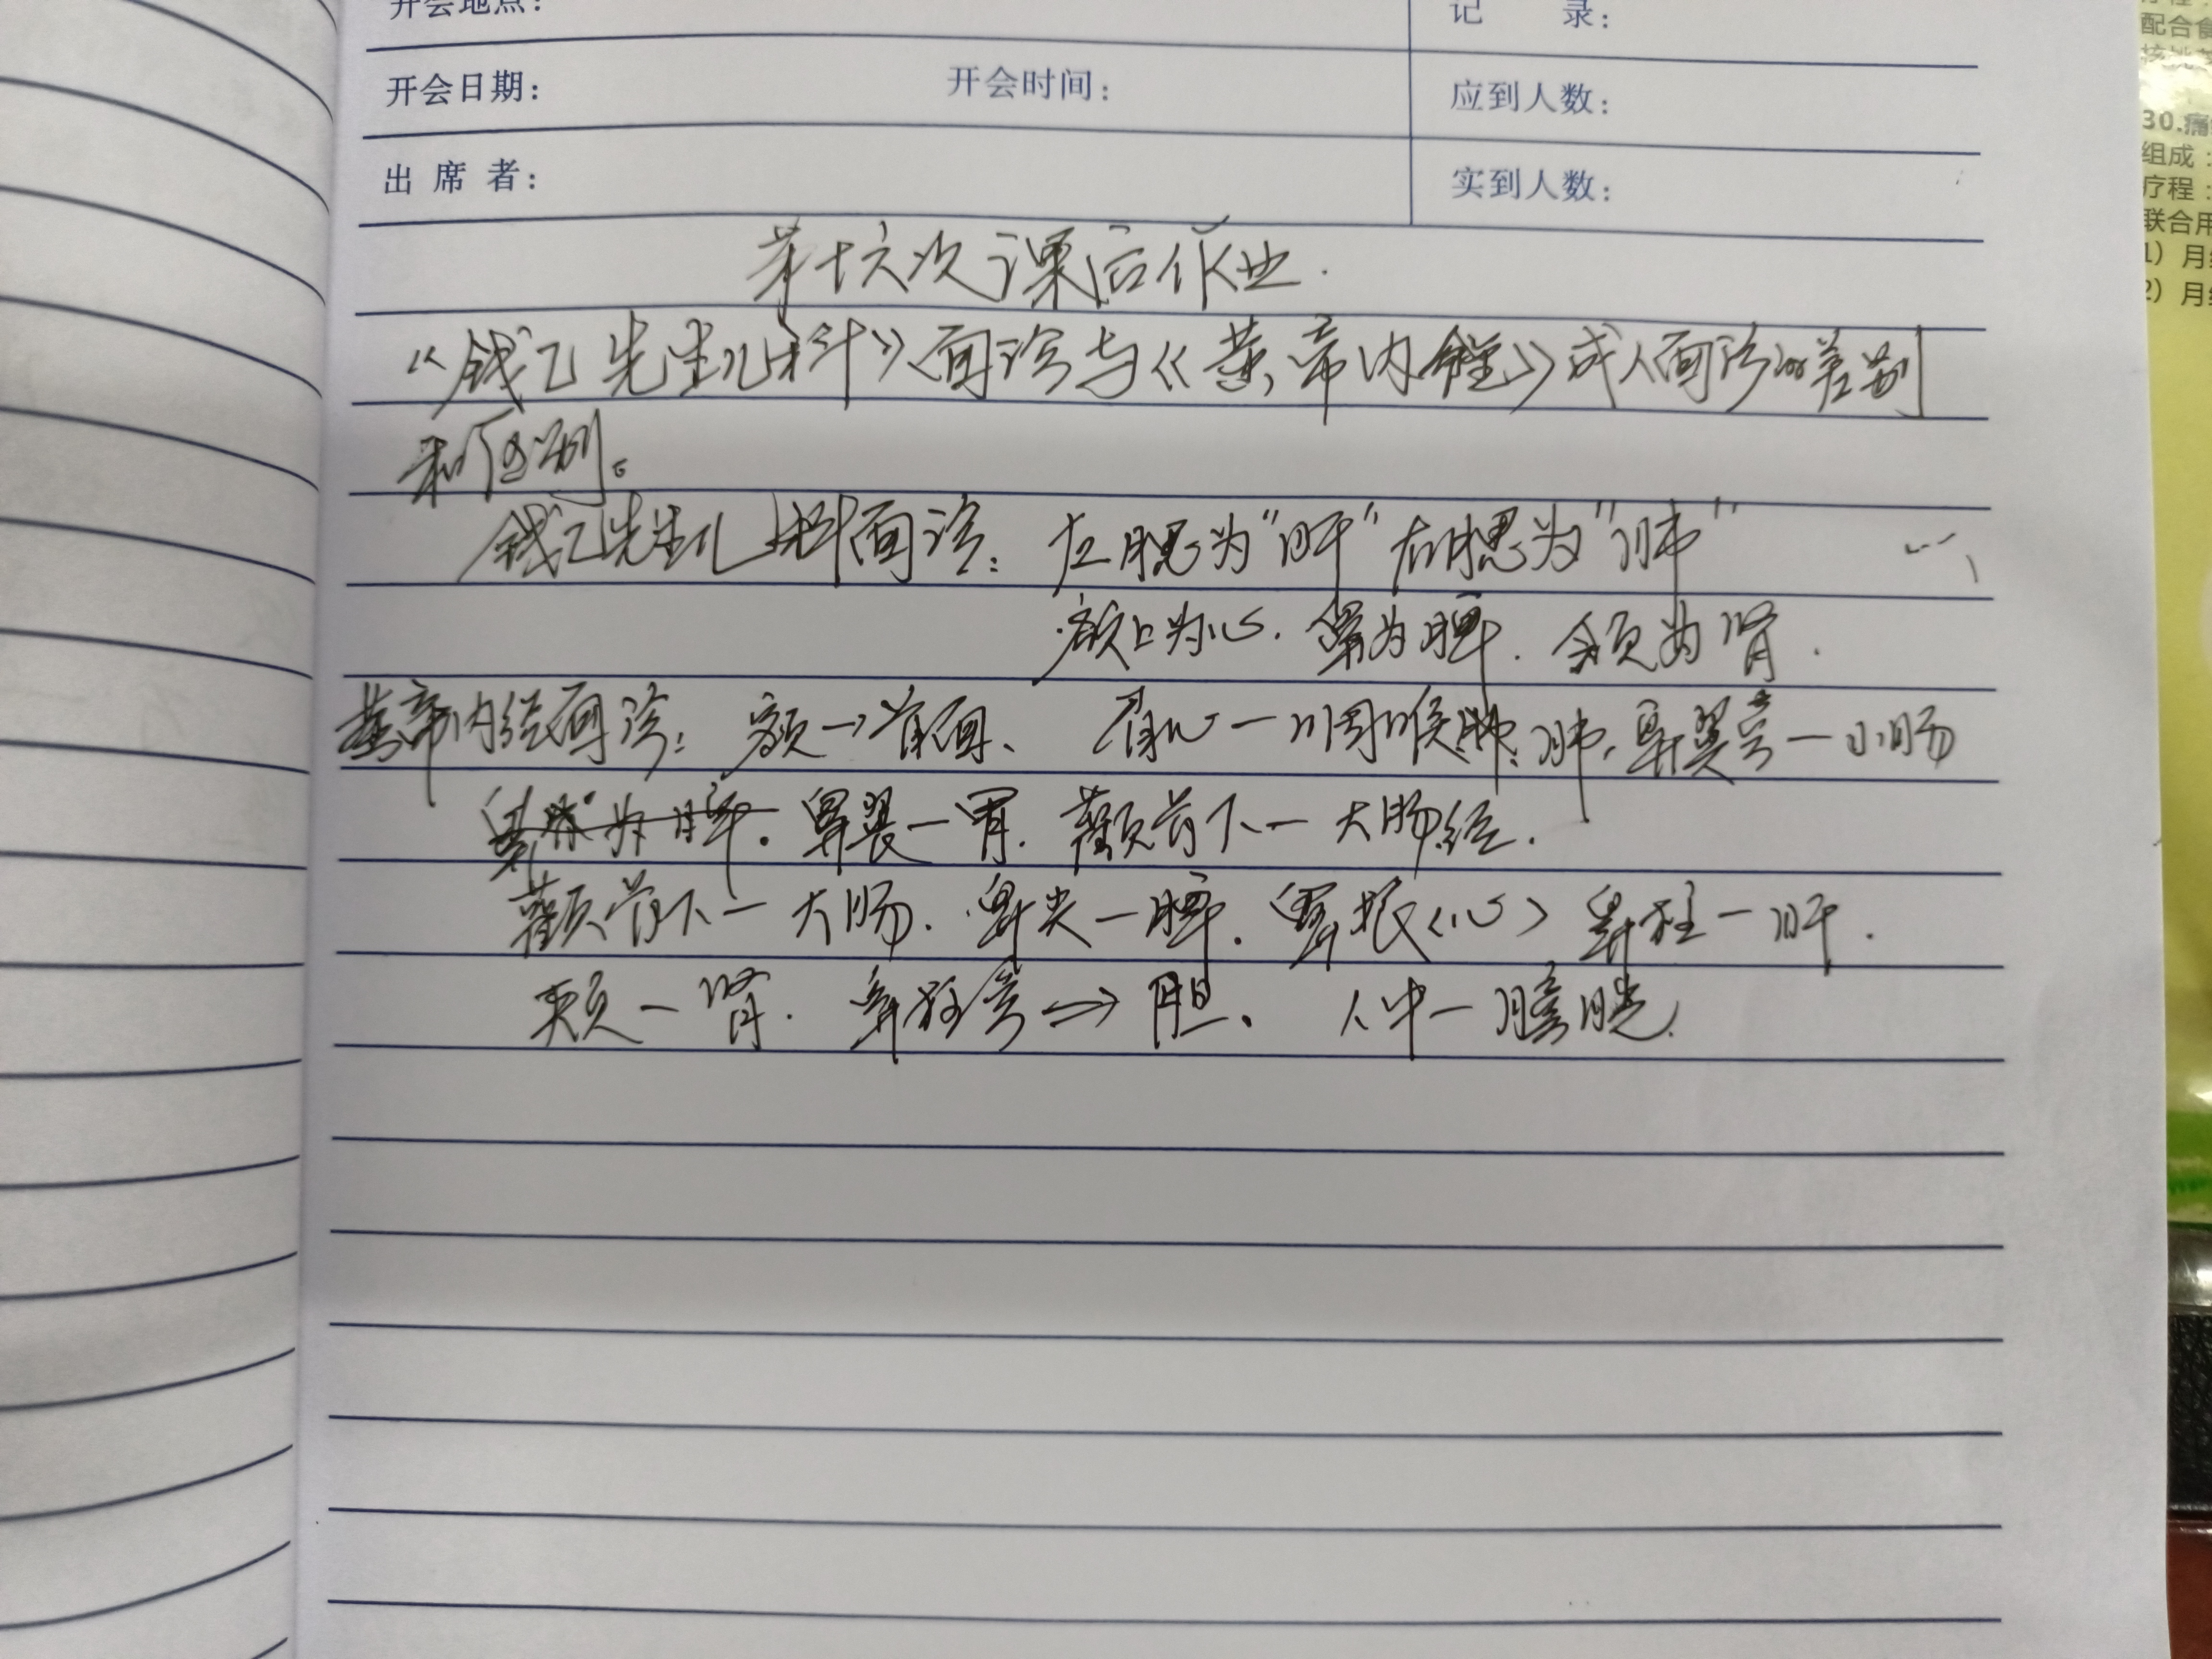 开会地点：
记 录：
开会日期： 开会时间： 应到人数：
出席者： 实到人数：
第十六次课后作业.
《钱乙先生儿科》面诊与《黄帝内经》成人面诊的差别
和区别。
钱乙先生儿科面诊：左腮为“肝”右腮为“肺”
额上为心. 鼻为脾. 颌为肾.
黄帝内经面诊：额→首面、 眉心一咽喉 肺, 鼻翼旁一小肠
为脾. 鼻翼一胃. 颧骨下一大肠经.
颧骨下一大肠. 鼻尖一脾. 鼻根〈心〉 鼻柱一肝.
颊一肾. 鼻柱旁⇒胆. 人中一膀胱.
配合
30.痛
组成：
疗程：
联合用
1）月
2）月